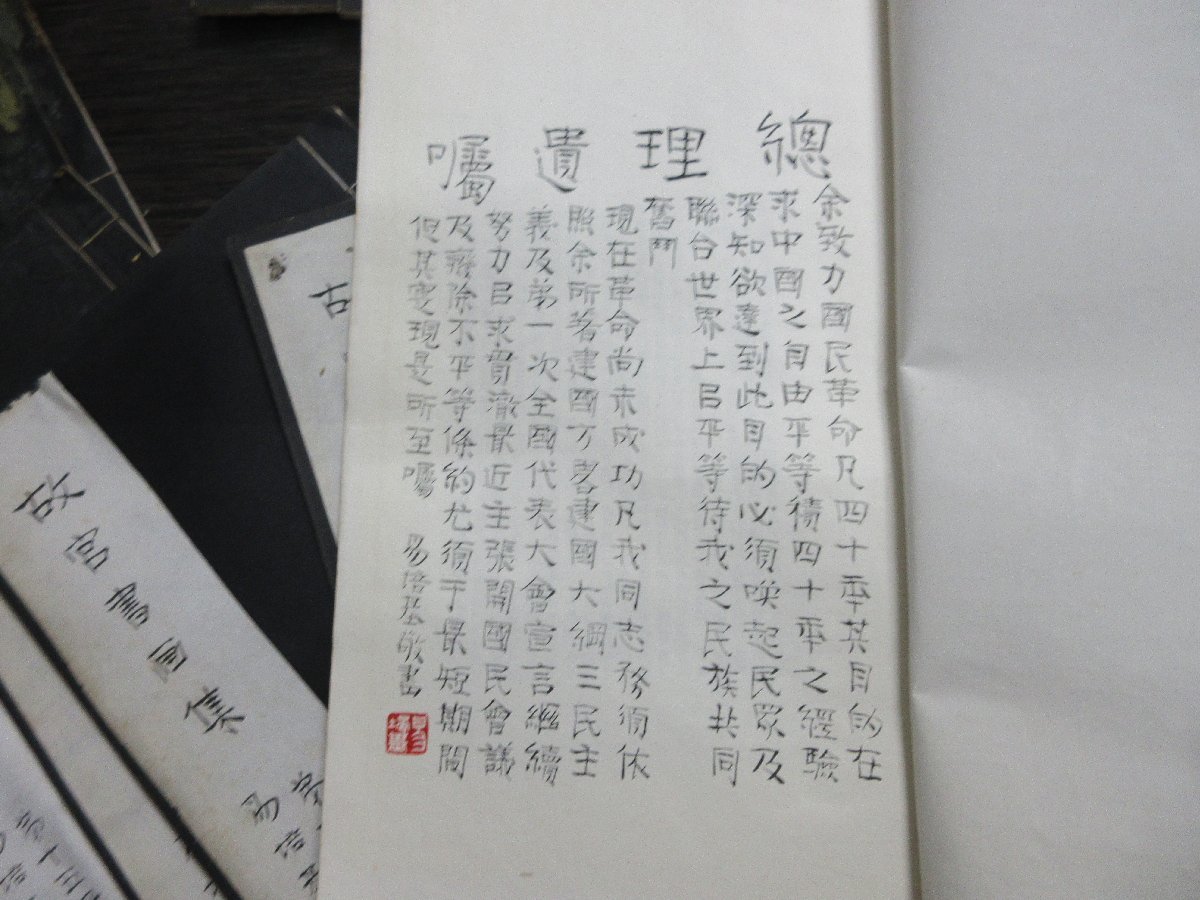 總理遺囑
余致力國民革命凡四十年其目的在
求中國之自由平等積四十年之經驗
深知欲達到此目的必須喚起民眾及
聯合世界上㠯平等待我之民族共同
奮鬥
現在革命尚未成功凡我同志務須依
照余所著建國方畧建國大綱三民主
義及第一次全國代表大會宣言繼續
努力㠯求貫澈最近主張開國民會議
及廢除不平等條約尤須于最短期間
促其實現是所至囑
易培基敬書
古
故宮書畫集
易培